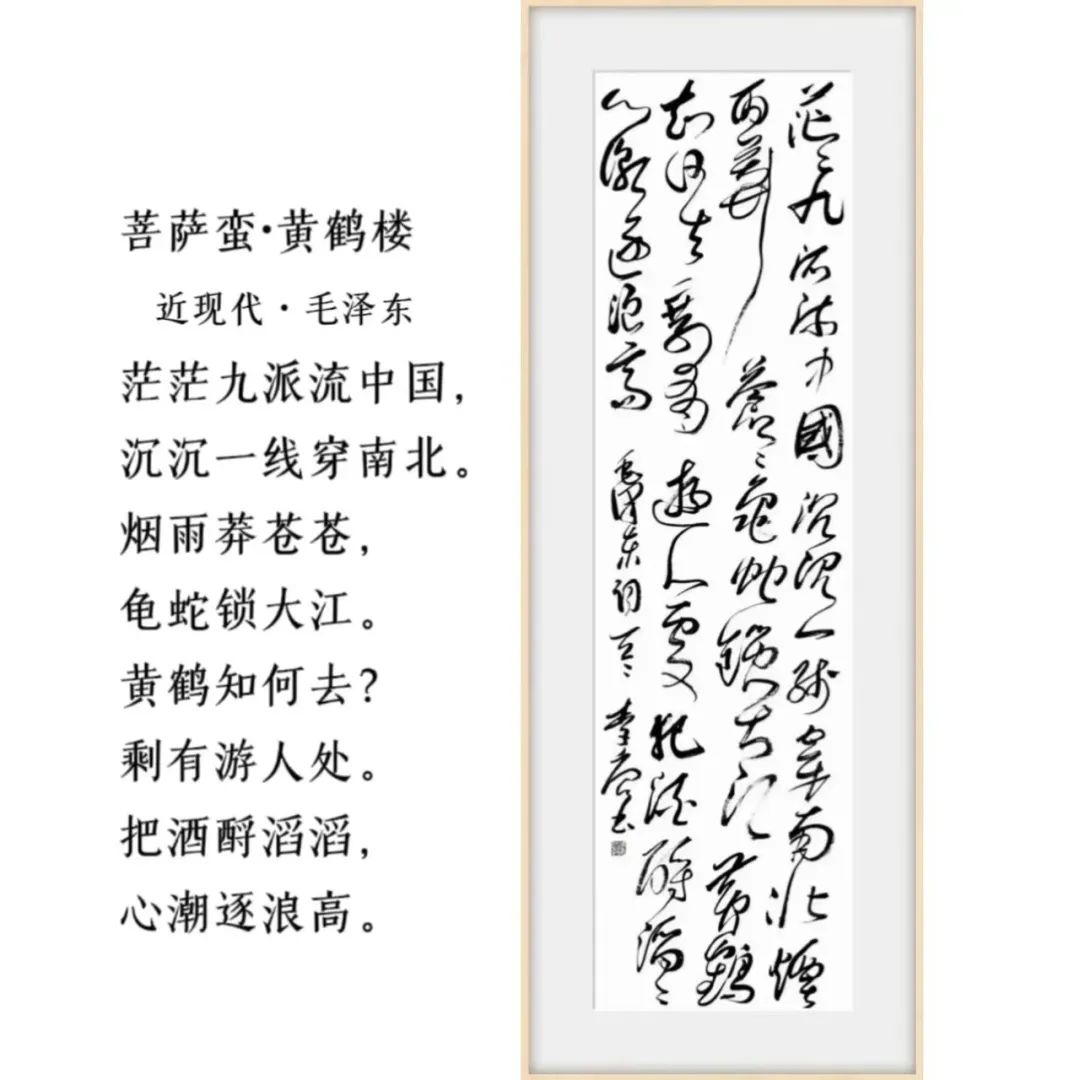 菩萨蛮·黄鹤楼
近现代·毛泽东
茫茫九派流中国，
沉沉一线穿南北。
烟雨莽苍苍，
龟蛇锁大江。
黄鹤知何去？
剩有游人处。
把酒酹滔滔，
心潮逐浪高。
茫〻九派流中國沉沉一线穿南北煙
雨莽蒼〻龜蛇鎖大江黄鶴
知何去剩有遊人處把酒酹滔〻
心潮逐浪高 毛澤东词